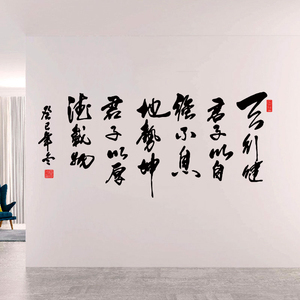 天行健
君子以自
強不息
地勢坤
君子以厚
德載物
癸巳年冬